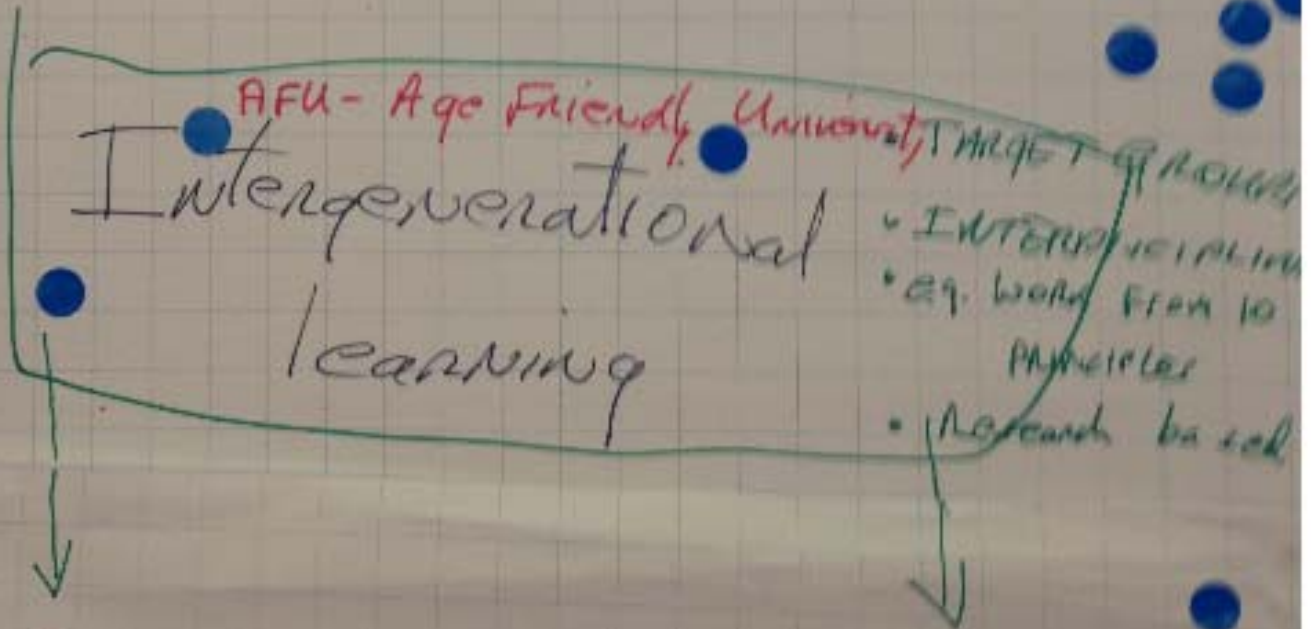 AFU - Age Friendly University
Intergenerational
learning
TARGET GROUPS
• INTERDICIPLIN
• eg. work from 10
PRINCIPLES
• Research based